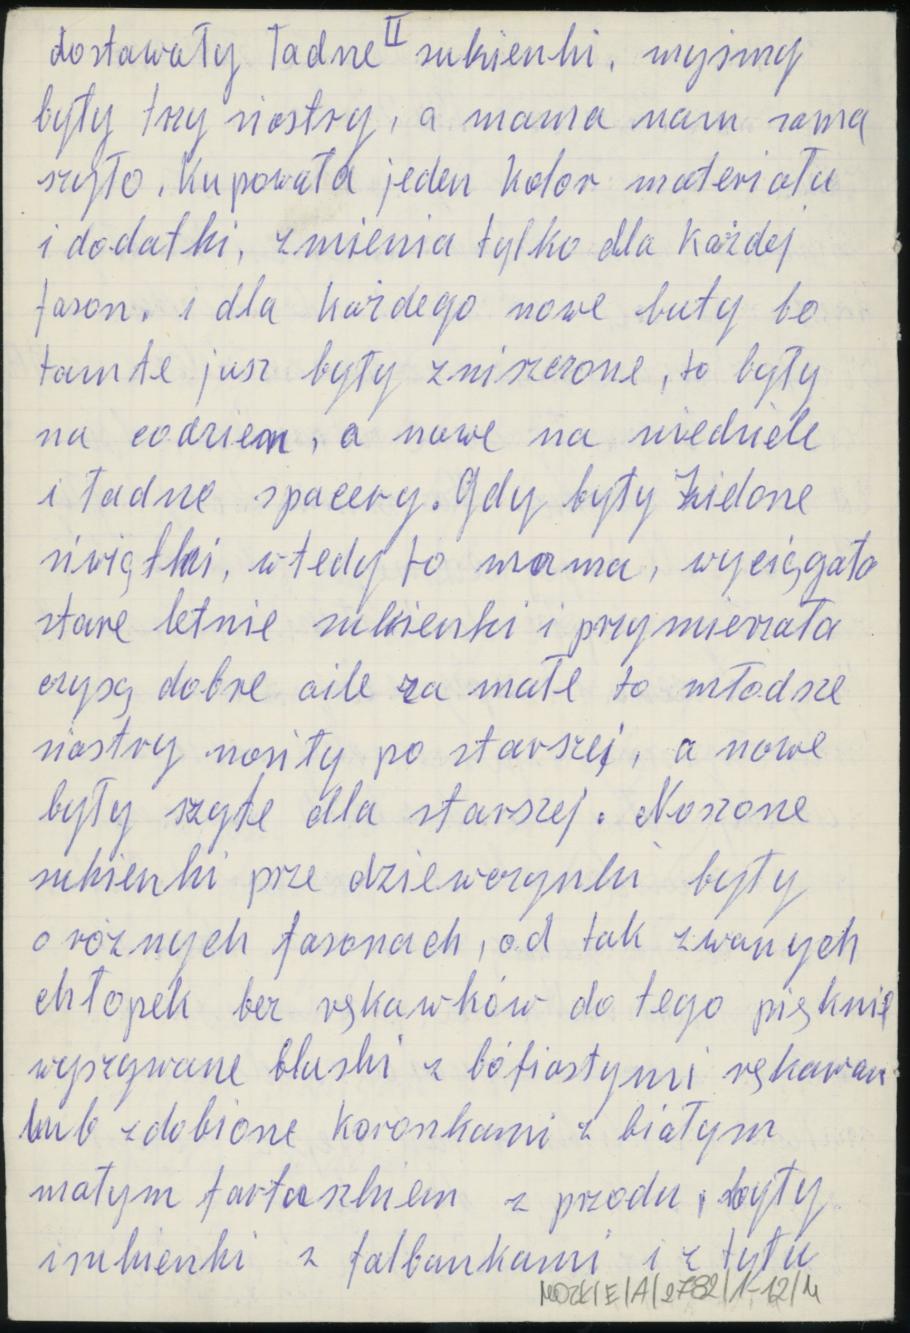 II
dostawały ładne sukienki, myśmy
były trzy siostry, a mama nam sama
szyło. Kupowała jeden kolor materiału
i dodatki, zmienia tylko dla każdej
fason. i dla każdego nowe buty bo
tamte jusz były zniszczone, to były
na codzien, a nowe na niedziele
i ładne spacery. Gdy były Zielone
siwiątki, wtedy to mama, wyciągało
stare letnie sukienki i przymierzała
czysą dobre aile za małe to młodsze
siostry nosiły po starszej, a nowe
były szyte dla starszej. Noszone
sukienki prze dziewczynki były
o różnych fasonach, od tak zwanych
chłopek bez rękawków do tego pięknie
wyszywane bluski z bófiastymi rękawam
lub zdobione koronkami z białym
małym fartuszkiem z przodu, były
i sukienki z falbankami i z tyłu